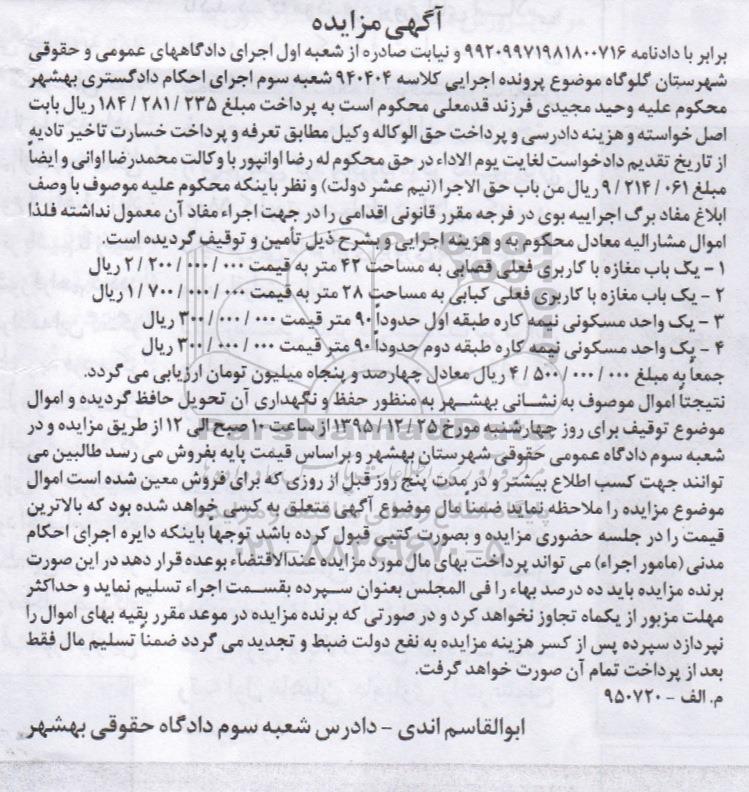 آگهی مزایده
برابر با دادنامه ۹۹۲۰۹۹۷۱۹۸۱۸۰۰۷۱۶ و نیابت صادره از شعبه اول اجرای دادگاههای عمومی و حقوقی
شهرستان گلوگاه موضوع پرونده اجرایی کلاسه ۹۴۰۴۰۴ شعبه سوم اجرای احکام دادگستری بهشهر
محکوم علیه وحید مجیدی فرزند قدمعلی محکوم است به پرداخت مبلغ ۲۳۵ / ۲۸۱ / ۱۸۴ ریال بابت
اصل خواسته و هزینه دادرسی و پرداخت حق الوکاله وکیل مطابق تعرفه و پرداخت خسارت تاخیر تادیه
از تاریخ تقدیم دادخواست لغایت یوم الاداء در حق محکوم له رضا اوانپور با وکالت محمدرضا اوانی و ایضاً
مبلغ ۰۶۱ / ۲۱۴ / ۹ ریال من باب حق الاجرا (نیم عشر دولت) و نظر باینکه محکوم علیه موصوف با وصف
ابلاغ مفاد برگ اجراییه بوی در فرجه مقرر قانونی اقدامی را در جهت اجراء مفاد آن معمول نداشته فلذا
اموال مشارالیه معادل محکوم به و هزینه اجرایی و بشرح ذیل تأمین و توقیف گردیده است.
۱ - یک باب مغازه با کاربری فعلی قصابی به مساحت ۴۲ متر به قیمت ۰۰۰ / ۰۰۰ / ۲۰۰ / ۲ ریال
۲ - یک باب مغازه با کاربری فعلی کبابی به مساحت ۲۸ متر به قیمت ۰۰۰ / ۰۰۰ / ۷۰۰ / ۱ ریال
۳ - یک واحد مسکونی نیمه کاره طبقه اول حدوداً ۹۰ متر قیمت ۰۰۰ / ۰۰۰ / ۳۰۰ ریال
۴ - یک واحد مسکونی نیمه کاره طبقه دوم حدوداً ۹۰ متر قیمت ۰۰۰ / ۰۰۰ / ۳۰۰ ریال
جمعاً به مبلغ ۰۰۰ / ۰۰۰ / ۵۰۰ / ۴ ریال معادل چهارصد و پنجاه میلیون تومان ارزیابی می گردد.
نتیجتاً اموال موصوف به نشانی بهشهر به منظور حفظ و نگهداری آن تحویل حافظ گردیده و اموال
موضوع توقیف برای روز چهارشنبه مورخ ۲۵ / ۱۲ / ۱۳۹۵ از ساعت ۱۰ صبح الی ۱۲ از طریق مزایده و در
شعبه سوم دادگاه عمومی حقوقی شهرستان بهشهر و براساس قیمت پایه بفروش می رسد طالبین می
توانند جهت کسب اطلاع بیشتر و در مدت پنج روز قبل از روزی که برای فروش معین شده است اموال
موضوع مزایده را ملاحظه نماید ضمناً مال موضوع آگهی متعلق به کسی خواهد شده بود که بالاترین
قیمت را در جلسه حضوری مزایده و بصورت کتبی قبول کرده باشد توجهاً باینکه دایره اجرای احکام
مدنی (مامور اجراء) می تواند پرداخت بهای مال مورد مزایده عندالاقتضاء بوعده قرار دهد در این صورت
برنده مزایده باید ده درصد بهاء را فی المجلس بعنوان سپرده بقسمت اجراء تسلیم نماید و حداکثر
مهلت مزبور از یکماه تجاوز نخواهد کرد و در صورتی که برنده مزایده در موعد مقرر بقیه بهای اموال را
نپردازد سپرده پس از کسر هزینه مزایده به نفع دولت ضبط و تجدید می گردد ضمناً تسلیم مال فقط
بعد از پرداخت تمام آن صورت خواهد گرفت.
م. الف - ۹۵۰۷۲۰
ابوالقاسم اندی - دادرس شعبه سوم دادگاه حقوقی بهشهر
ParsNamadData
۰۲۱-۸۸۳۴۹۶۷۰-۵